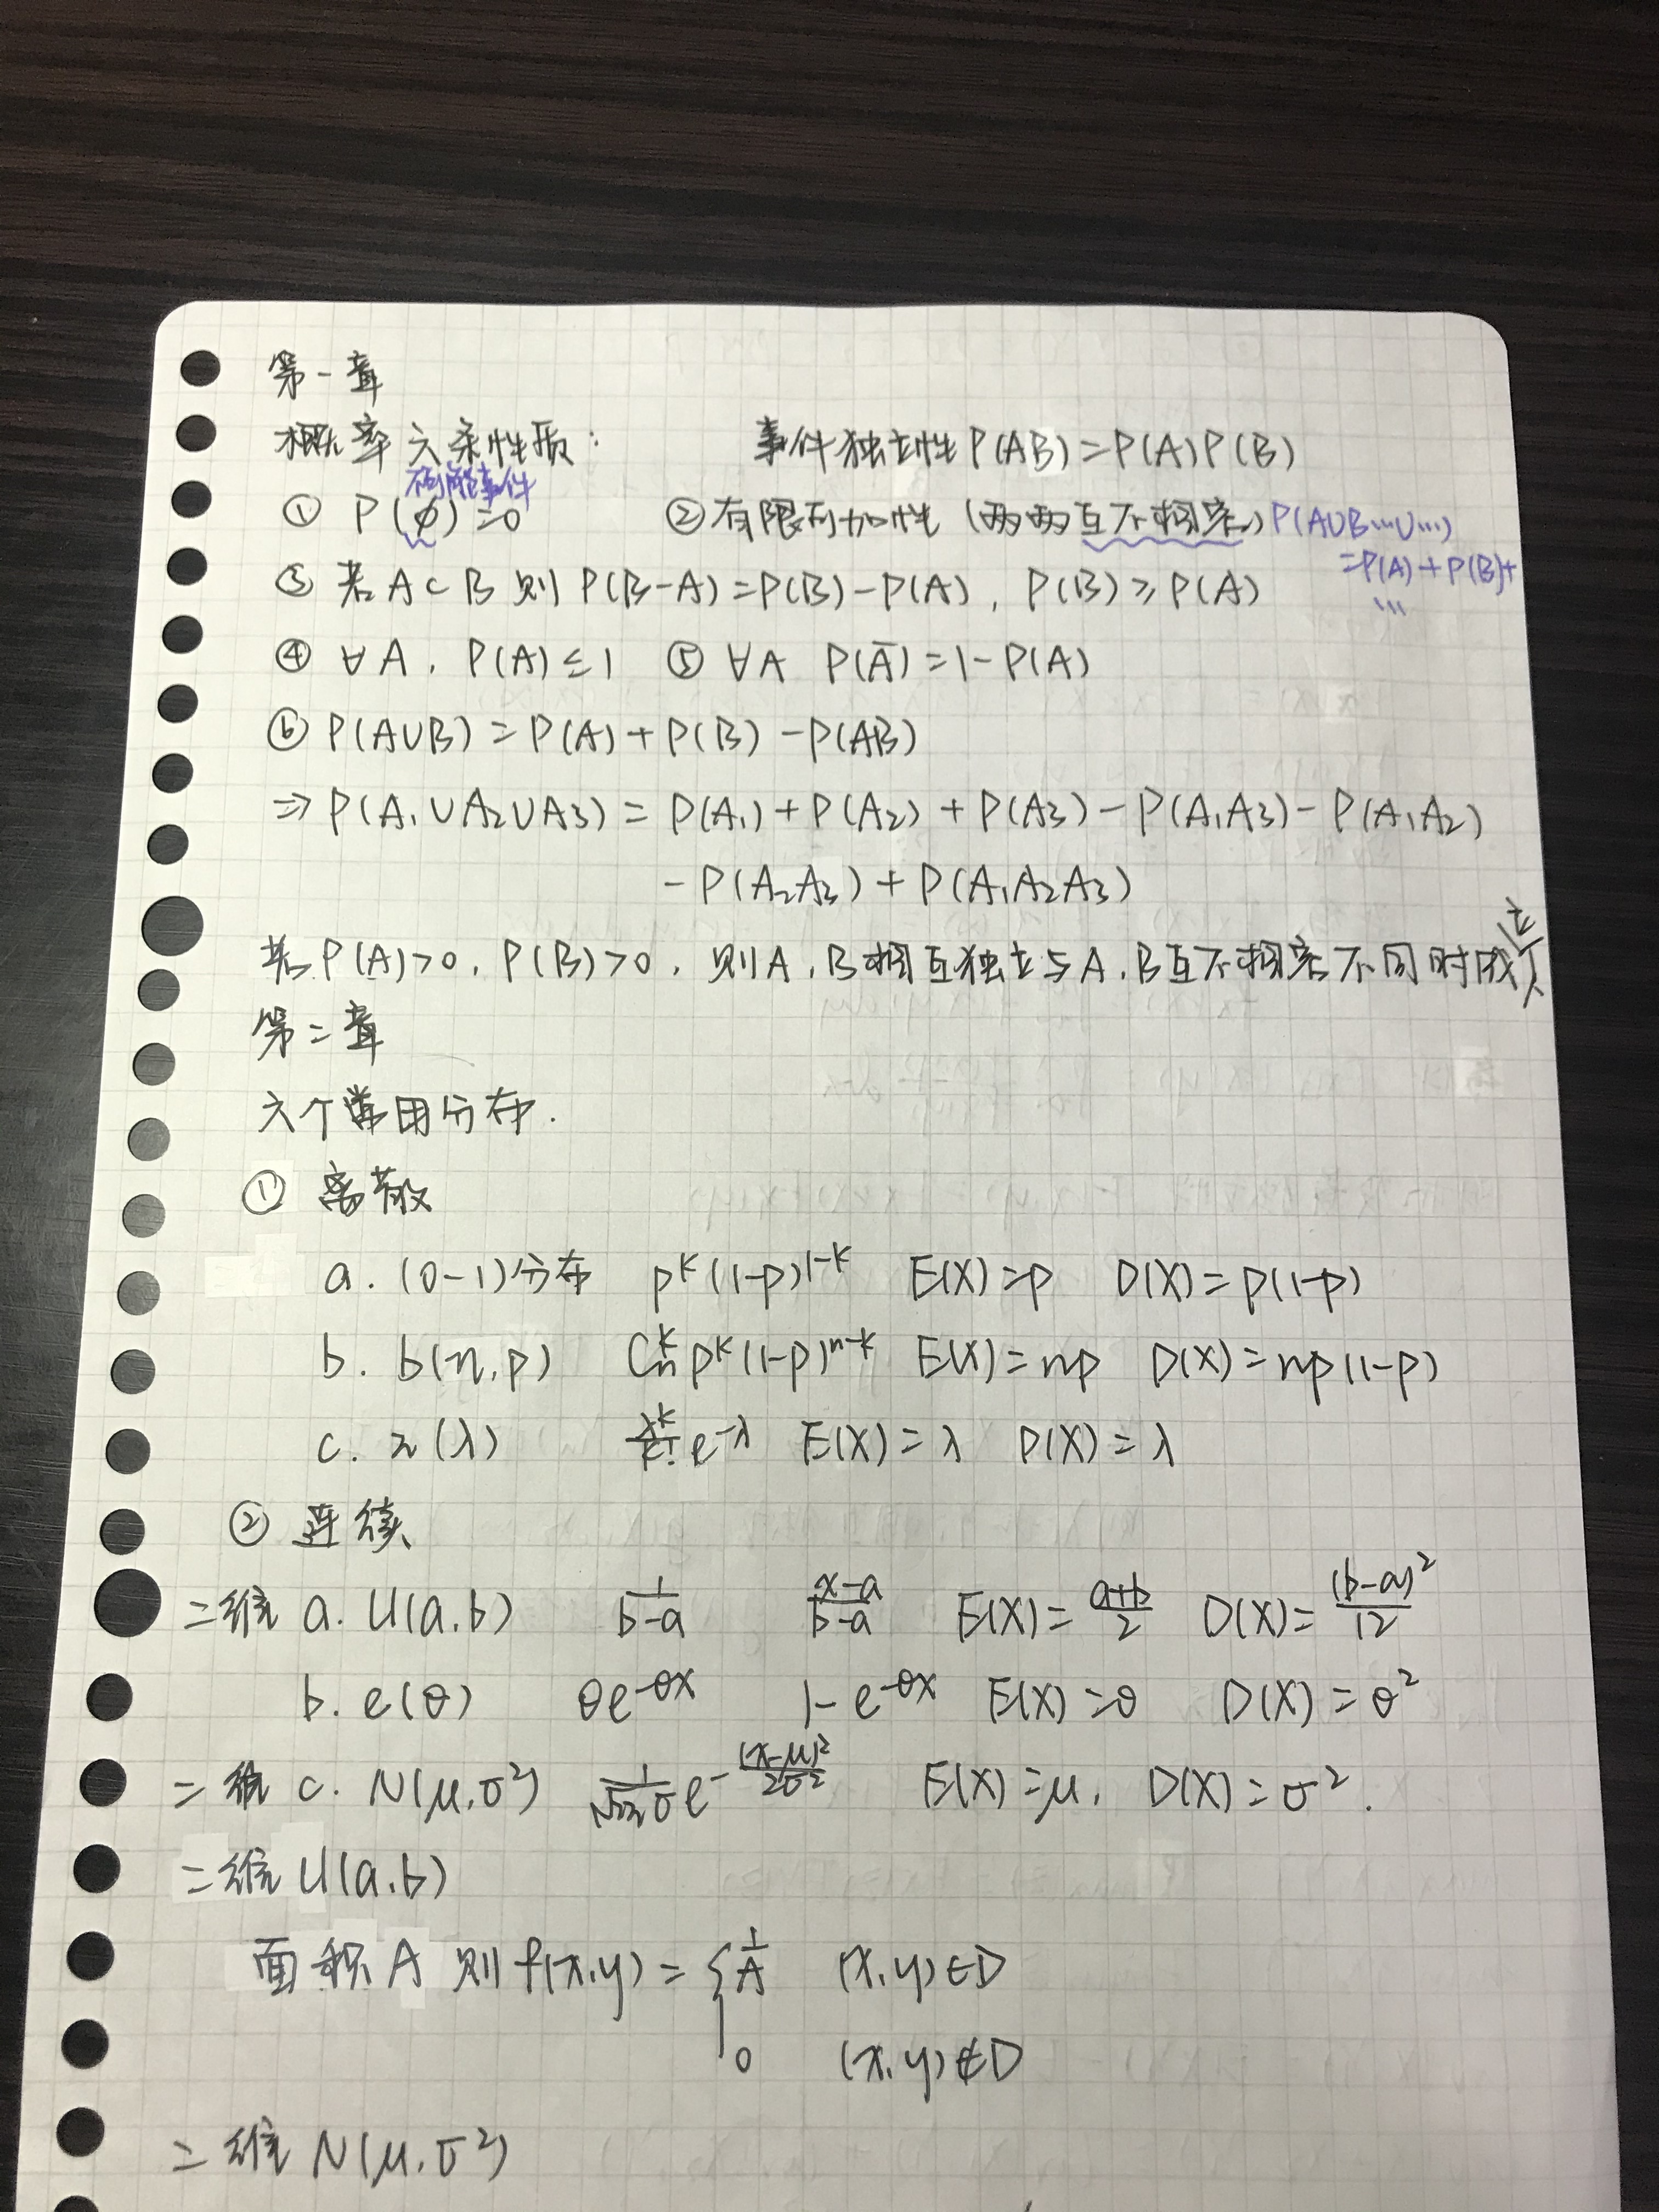 第一章
概率六条性质： 事件独立性 P(AB)=P(A)P(B)
不可能事件
① P(∅)=0 ②有限可加性 (两两互不相容) P(A∪B…∪…)
=P(A)+P(B)+
…
③ 若 A⊂B 则 P(B-A)=P(B)-P(A), P(B)≥P(A)
④ ∀A, P(A)≤1 ⑤ ∀A P(Ā)=1-P(A)
⑥ P(A∪B)=P(A)+P(B)-P(AB)
⇒ P(A₁∪A₂∪A₃)= P(A₁)+P(A₂)+P(A₃)-P(A₁A₃)-P(A₁A₂)
-P(A₂A₃)+P(A₁A₂A₃)
若 P(A)>0, P(B)>0, 则A,B相互独立与A,B互不相容不同时成立
第二章
六个常用分布.
① 离散
a. (0-1)分布 p^k(1-p)^{1-k} E(X)=p D(X)=p(1-p)
b. b(n,p) C_n^k p^k(1-p)^{n-k} E(X)=np D(X)=np(1-p)
c. π(λ) λ^k/k! e^{-λ} E(X)=λ D(X)=λ
② 连续
二维 a. U(a,b) 1/(b-a) (x-a)/(b-a) E(X)=(a+b)/2 D(X)=(b-a)²/12
b. e(θ) θe^{-θx} 1-e^{-θx} E(X)=θ D(X)=θ²
二维 c. N(μ,σ²) 1/(√2π σ) e^{-(x-μ)²/2σ²} E(X)=μ, D(X)=σ².
二维 U(a,b)
面积A 则 f(x,y)={ 1/A (x,y)∈D
0 (x,y)∉D
二维 N(μ,σ²)